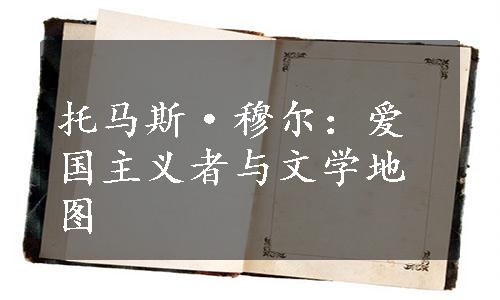 托马斯·穆尔：爱
国主义者与文学地
图